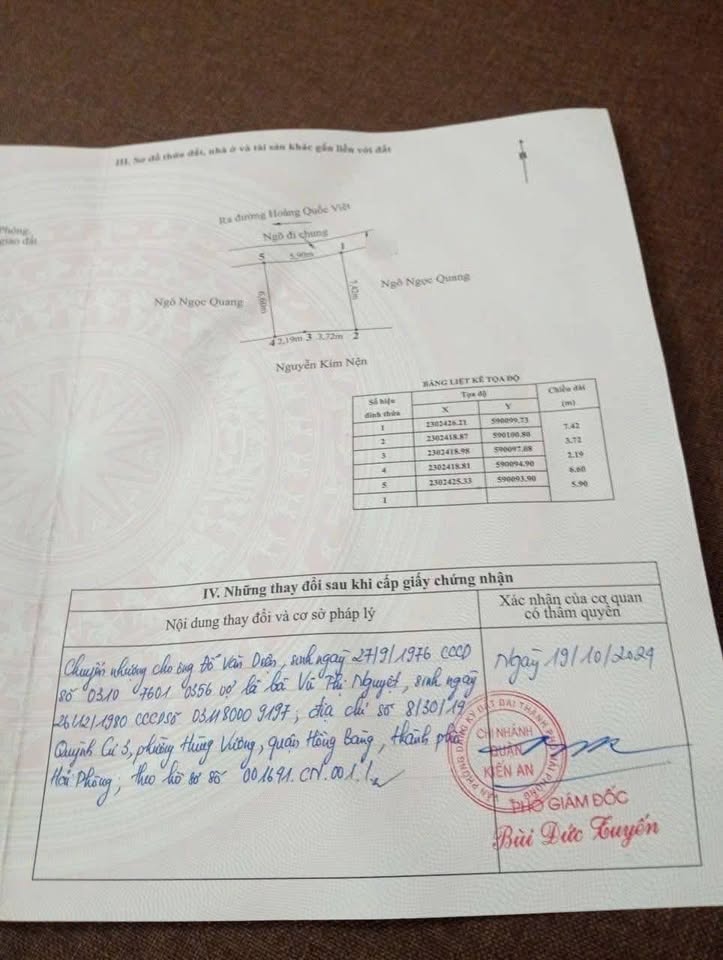 III. Sơ đồ thửa đất, nhà ở và tài sản khác gắn liền với đất
Phòng.
giao đất
Ra đường Hoàng Quốc Việt
Ngõ đi chung
5 5,90m 1
Ngô Ngọc Quang 6,60m 7,42m Ngô Ngọc Quang
4 2,19m 3 3,72m 2
Nguyễn Kim Nện
BẢNG LIỆT KÊ TỌA ĐỘ
Số hiệu đỉnh thửa Tọa độ Chiều dài (m)
X Y
1 2302426.21 590099.73
7.42
2 2302418.87 590100.80
3.72
3 2302418.98 590097.08
2.19
4 2302418.81 590094.90
6.60
5 2302425.33 590093.90
5.90
1
IV. Những thay đổi sau khi cấp giấy chứng nhận
Nội dung thay đổi và cơ sở pháp lý
Xác nhận của cơ quan
có thẩm quyền
Chuyển nhượng cho ông Đỗ Văn , sinh ngày 27/9/1976 CCCD
số 0310 7601 0356 vợ là bà Vũ Thị Nguyệt, sinh ngày
26/12/1980 CCCD số 03118000 9197; địa chỉ số 8/30/19
Quỳnh Cư 3, phường Hùng Vương, quận Hồng Bàng, thành phố
Hải Phòng; theo hồ sơ số 001691.CN.001./.
Ngày 19/10/2024
VĂN PHÒNG ĐĂNG KÝ ĐẤT ĐAI THÀNH PHỐ HẢI PHÒNG
CHI NHÁNH
QUẬN
KIẾN AN
PHÓ GIÁM ĐỐC
Bùi Đức Tuyến